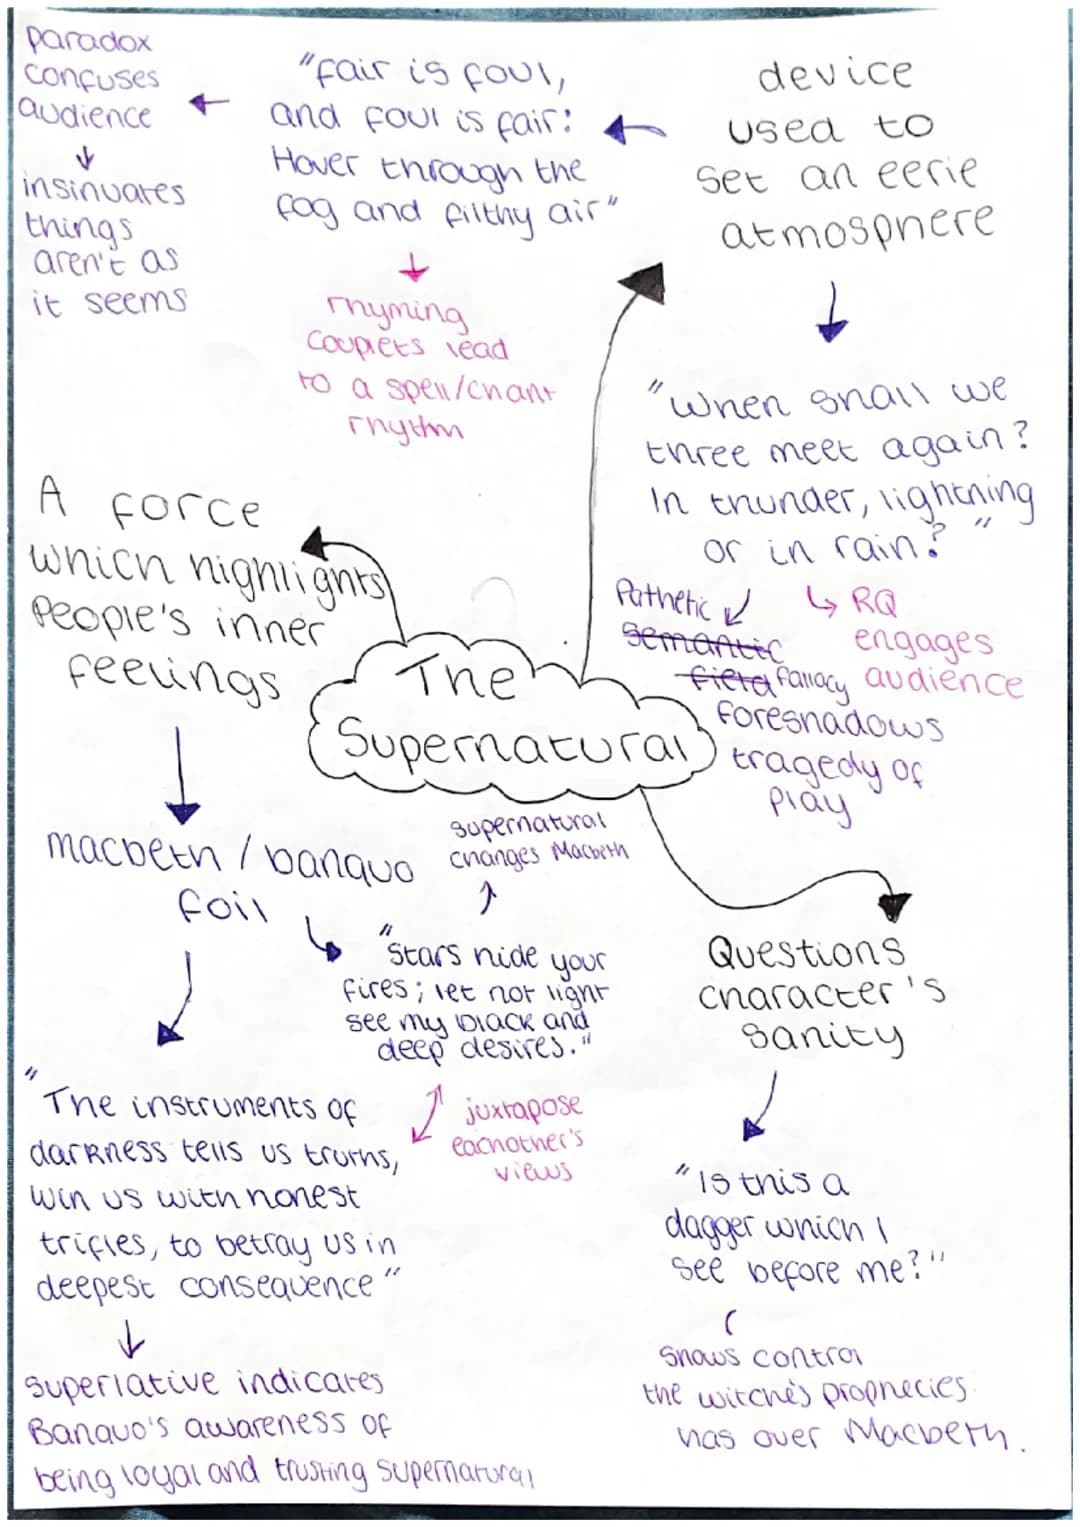 paradox
confuses
audience
insinuates
things
aren't as
it seems
"fair is foul,
and foul is fair:
Hover through the
fog and filthy air"
rhyming
couplets lead
to a spell/chant
rhythm
device
used to
set an eerie
atmosphere
"When shall we
three meet again?
In thunder, lightning
or in rain?"
Pathetic
semantic
field fallacy
foreshadows
tragedy of
play
RQ
engages
audience
A force
which highlights
People's inner
feelings
The
Supernatural
macbeth / banquo
foil
supernatural
changes Macbeth
"Stars hide your
fires; let not light
see my black and
deep desires."
juxtapose
eachother's
views
"The instruments of
darkness tells us truths,
win us with honest
trifles, to betray us in
deepest consequence"
superlative indicates
Banquo's awareness of
being loyal and trusting supernatural
Questions
character's
sanity
"Is this a
dagger which I
see before me?"
Shows control
the witche's prophecies
has over Macbeth.